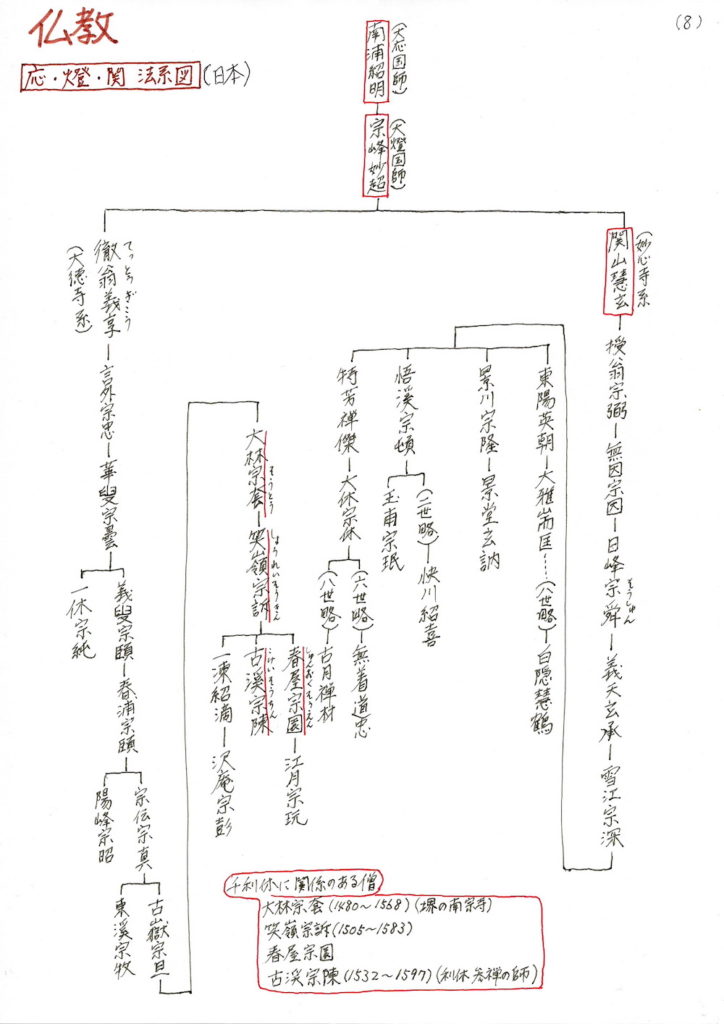 (8)
仏教
応・燈・関 法系図(日本)
南浦紹明
(大応国師)
宗峰妙超
(大燈国師)
関山慧玄
(妙心寺系)
授翁宗弼
無因宗因
日峰宗舜
そうしゅん
義天玄承
雪江宗深
東陽英朝
大雅耑匡
(八世略)
白隠慧鶴
景川宗隆
景堂玄訥
悟溪宗頓
(二世略)
快川紹喜
玉甫宗珉
特芳禅傑
大休宗休
(六世略)
無着道忠
(八世略)
古月禅材
徹翁義亨
てっとうぎこう
(大徳寺系)
言外宗忠
華叟宗曇
義叟宗頤
春浦宗頤
一休宗純
宗伝宗真
陽峰宗昭
古嶽宗亘
東溪宗牧
大林宗套
そうとう
笑嶺宗訢
しょうれいそうきん
春屋宗園
しゅんおくそうえん
江月宗玩
古溪宗陳
こけいそうちん
一凍紹滴
沢庵宗彭
千利休に関係のある僧
大林宗套(1480〜1568)(堺の南宗寺)
笑嶺宗訢(1505〜1583)
春屋宗園
古渓宗陳(1532〜1597)(利休参禅の師)